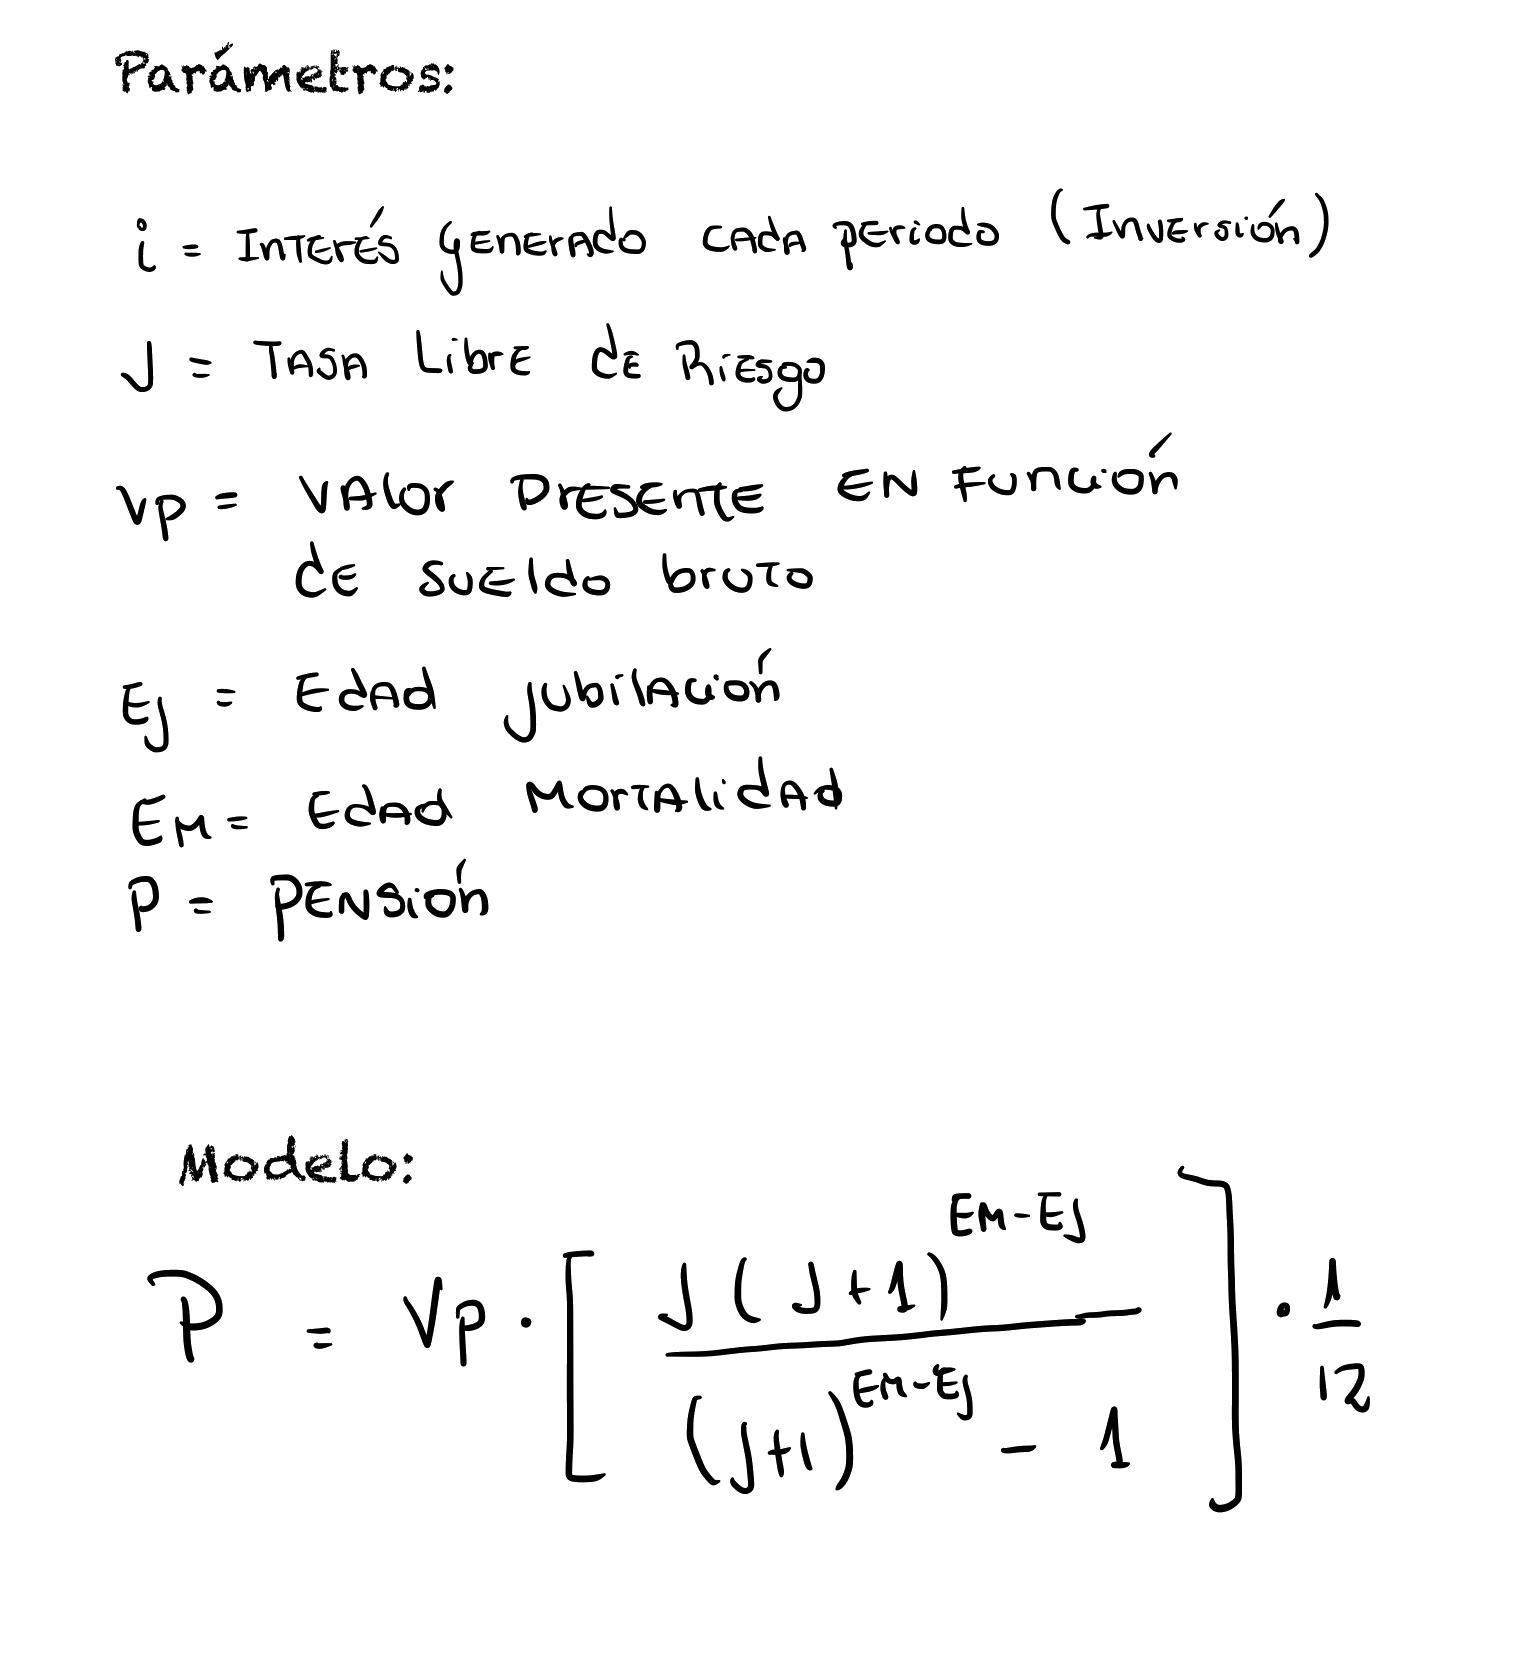 Parámetros:
i = Interés generado cada periodo (Inversión)
J = Tasa Libre de Riesgo
Vp = Valor Presente en Función
de sueldo bruto
Ej = Edad jubilación
EM = Edad Mortalidad
P = Pensión
Modelo:
P = Vp · [ J(J+1)^(EM-EJ) / ((J+1)^(EM-Ej) - 1) ] · 1/12